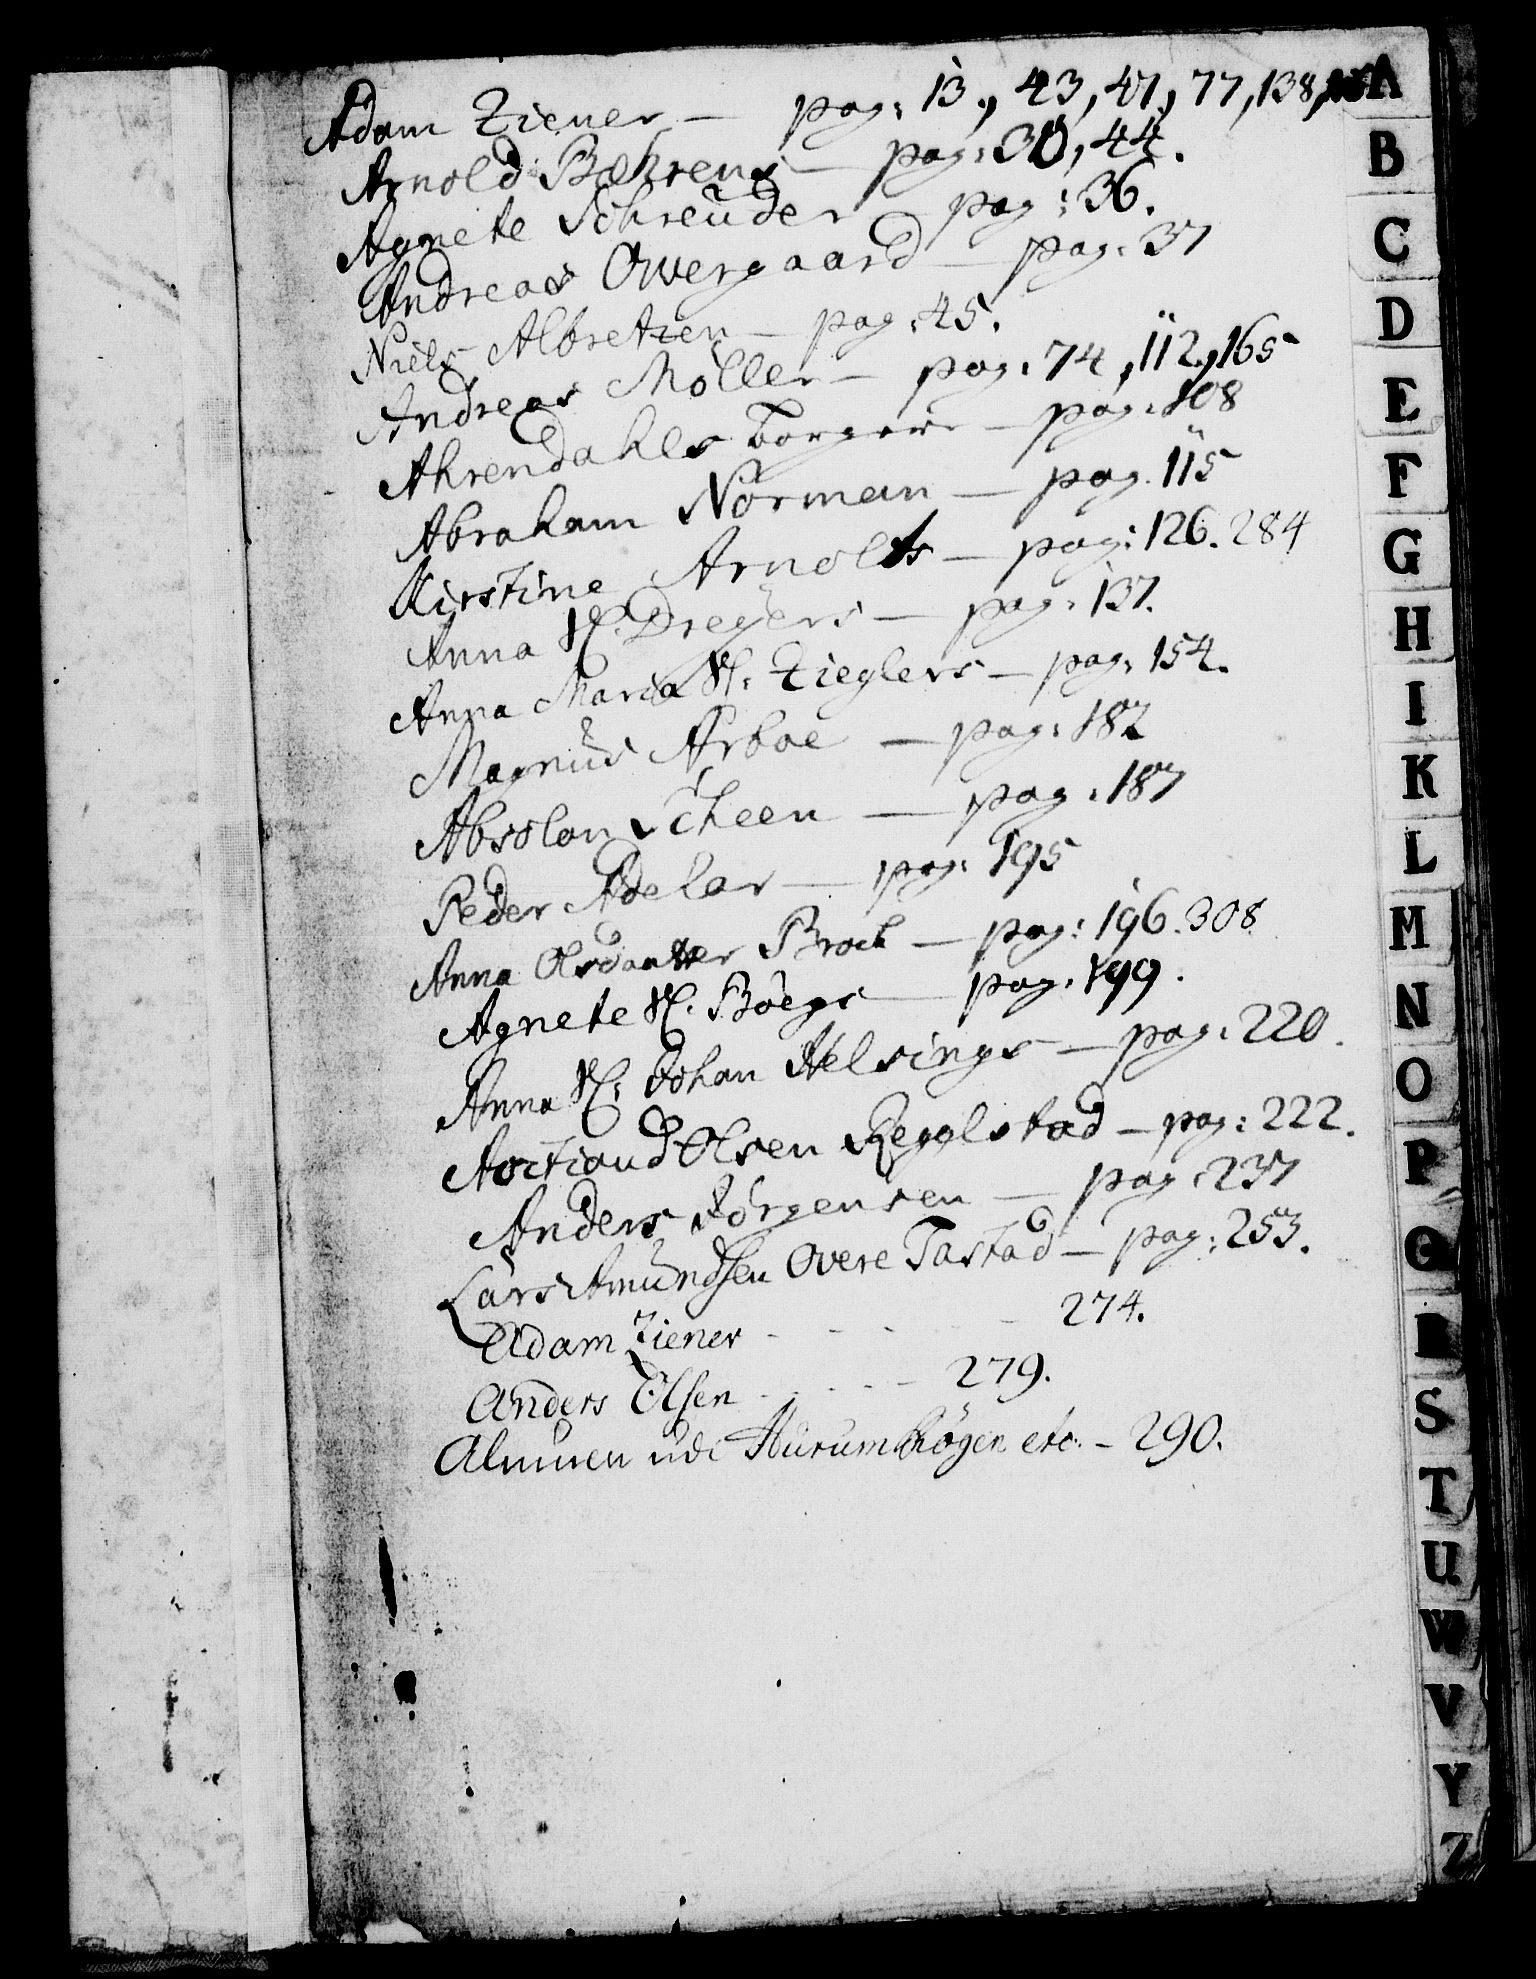 Adam Ziener — pag: 13, 43, 47, 77, 138,
Arnold Bæhrens — pag: 30, 44.
Agnete Schreüder — pag: 36.
Andreas Overgaard — pag: 37
Niels Albretzen — pag: 45.
Andreas Möller — pag: 74, 112, 165
Ahrendahls — pag: 108
Abraham Norman — pag. 115
Kirstine Arnolts — pag: 126. 284
Anna Sl. Dreyers — pag: 137.
Anna Maria Sl: Zieglers — pag: 154.
Magnüs Arboe — pag: 182
Absolon Scheen — pag: 187
Peder Adeler — pag: 195
Anna Olsdaatter Brock — pag: 196. 308
Agnete Sl. Böegs — pag: 199.
Anna Sl: Johan Helsings — pag: 220.
Olsen — pag: 222.
Anders Jörgensen — pag: 237
Lars Amündsen Overe Tastad — pag: 253.
Adam Ziener - - - - - 274.
Anders Olsen - - - - 279.
udi Hürumskögen etc: - 290.
A
B
C
D
E
F
G
H
I
K
L
M
N
O
P
Q
R
S
T
U
W
V
Y
Z